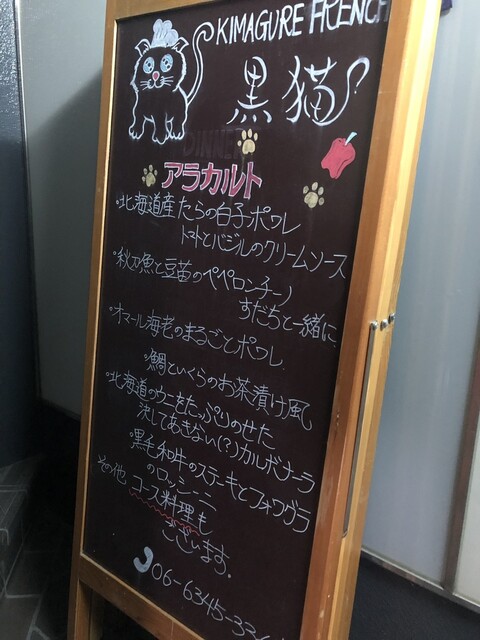 KIMAGURE FRENCH
黒猫
DINNER
アラカルト
・北海道産たらの白子ポワレ
トマトとバジルのクリームソース
・秋刀魚と豆苗のペペロンチーノ
すだちと一緒に
・オマール海老のまるごとポワレ
鯛といくらのお茶漬け風
・北海道のウニをたっぷりのせた
決してあきない(?)カルボナーラ
・黒毛和牛のステーキとフォワグラ
のロッシーニ
その他 コース料理も
ございます。
06-6345-33